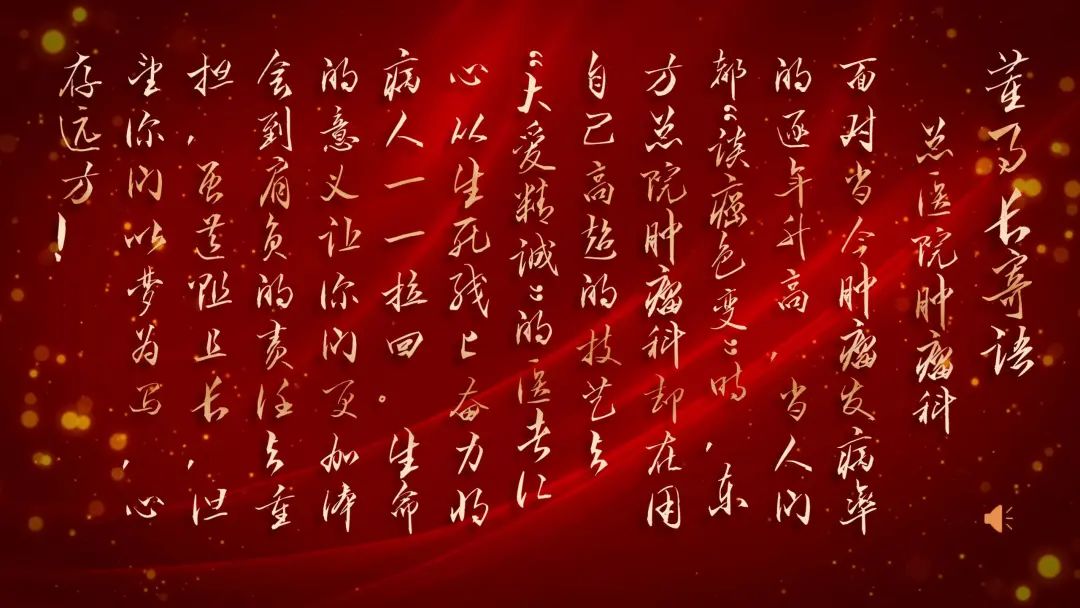 董事长寄语
总医院肿瘤科
面对当今肿瘤发病率
的逐年升高，当人们
都“谈癌色变”时，东
方总院肿瘤科却在用
自己高超的技艺与
“大爱精诚”的医者仁
心从生死线上奋力将
病人一一拉回。生命
的意义让你们更加体
会到肩负的责任与重
担，虽道阻且长，但
望你们以梦为马，心
存远方！